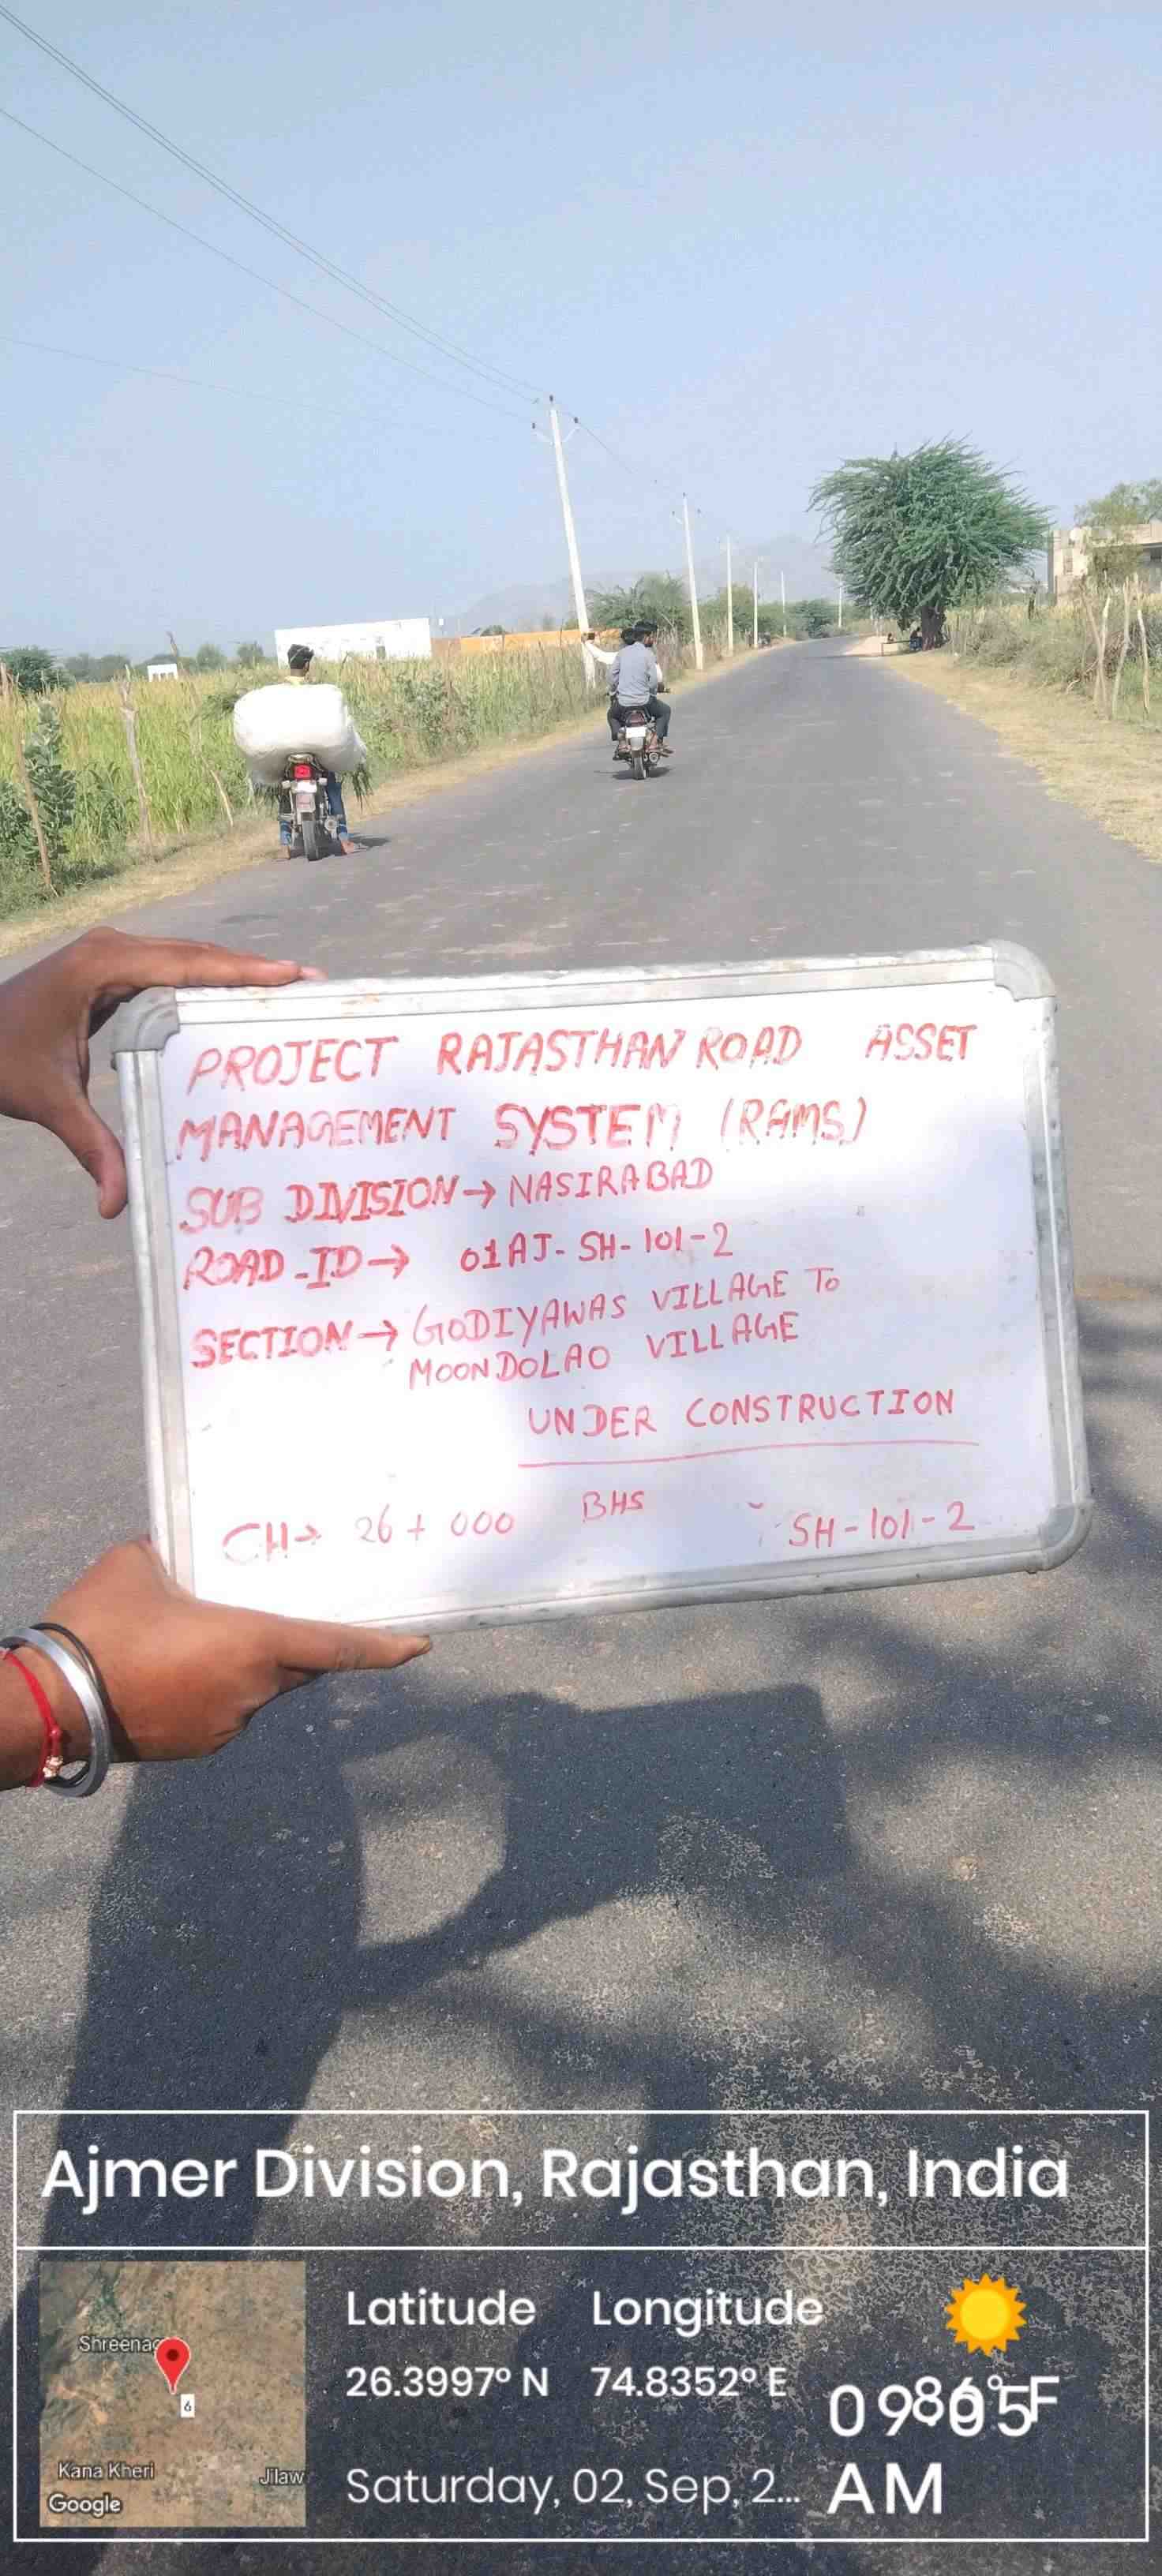 PROJECT RAJASTHAN ROAD ASSET
MANAGEMENT SYSTEM (RAMS)
SUB DIVISION → NASIRABAD
ROAD-ID → 01AJ-SH-101-2
SECTION → GODIYAWAS VILLAGE To
MOONDOLAO VILLAGE
UNDER CONSTRUCTION
BHS
CH → 26+000
SH-101-2
Ajmer Division, Rajasthan, India
Shreenag
6
Kana Kheri
Jilaw
Google
Latitude
Longitude
26.3997° N
74.8352° E
Saturday, 02, Sep, 2...
AM